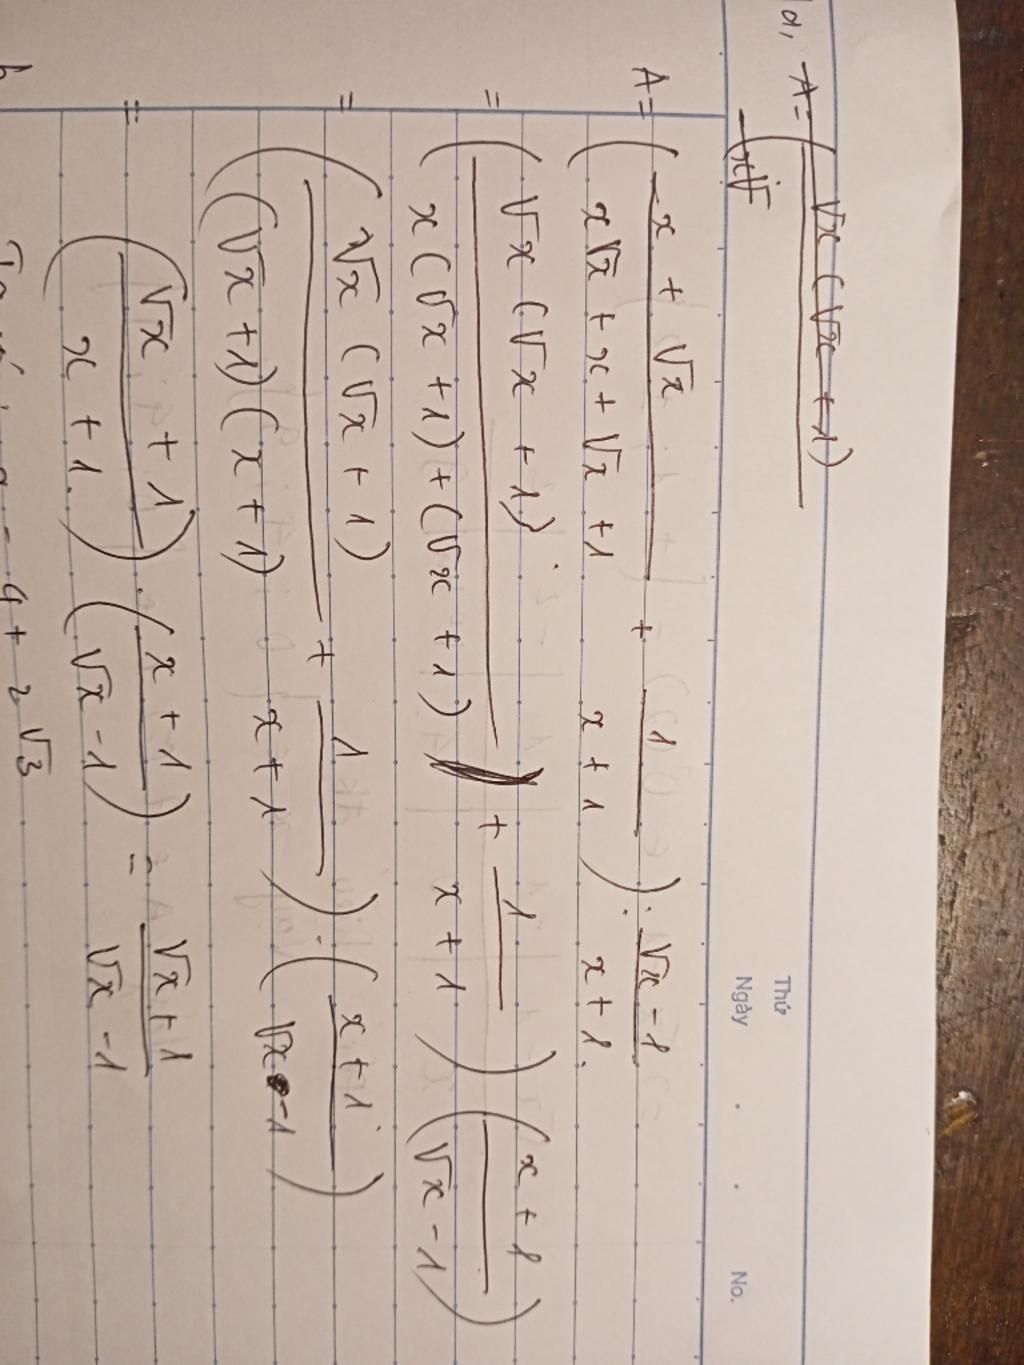 Thứ
Ngày . . No.
a, A = ( √x (√x + 1)
x√
A = ( x + √x / x√x + x + √x + 1 + 1 / x + 1 ) : √x - 1 / x + 1.
= ( √x (√x + 1) / x (√x + 1) + (√x + 1) + 1 / x + 1 ) ( x + 1 / √x - 1 )
= ( √x (√x + 1) / (√x + 1) (x + 1) + 1 / x + 1 ) . ( x + 1 / √x - 1 )
= ( √x + 1 / x + 1. ) . ( x + 1 / √x - 1 ) = √x + 1 / √x - 1
4 + 2√3